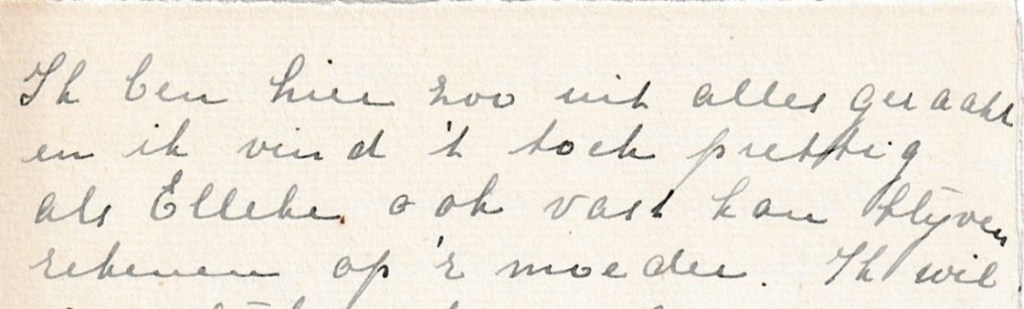 Ik ben hier zoo uit alles geraakt
en ik vind 't toch prettig
als Elleke ook vast kan blijven
rekenen op 'r moeder. Ik wil